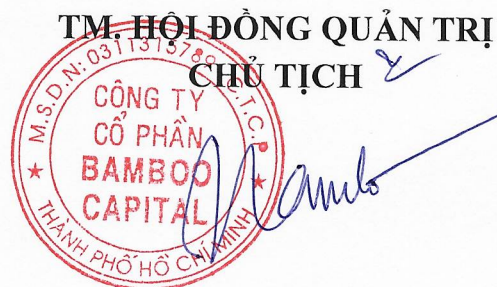 TM. HỘI ĐỒNG QUẢN TRỊ
CHỦ TỊCH
M.S.D.N: 0311315789 C.T.C.P
CÔNG TY
CỔ PHẦN
BAMBOO
CAPITAL
THÀNH PHỐ HỒ CHÍ MINH